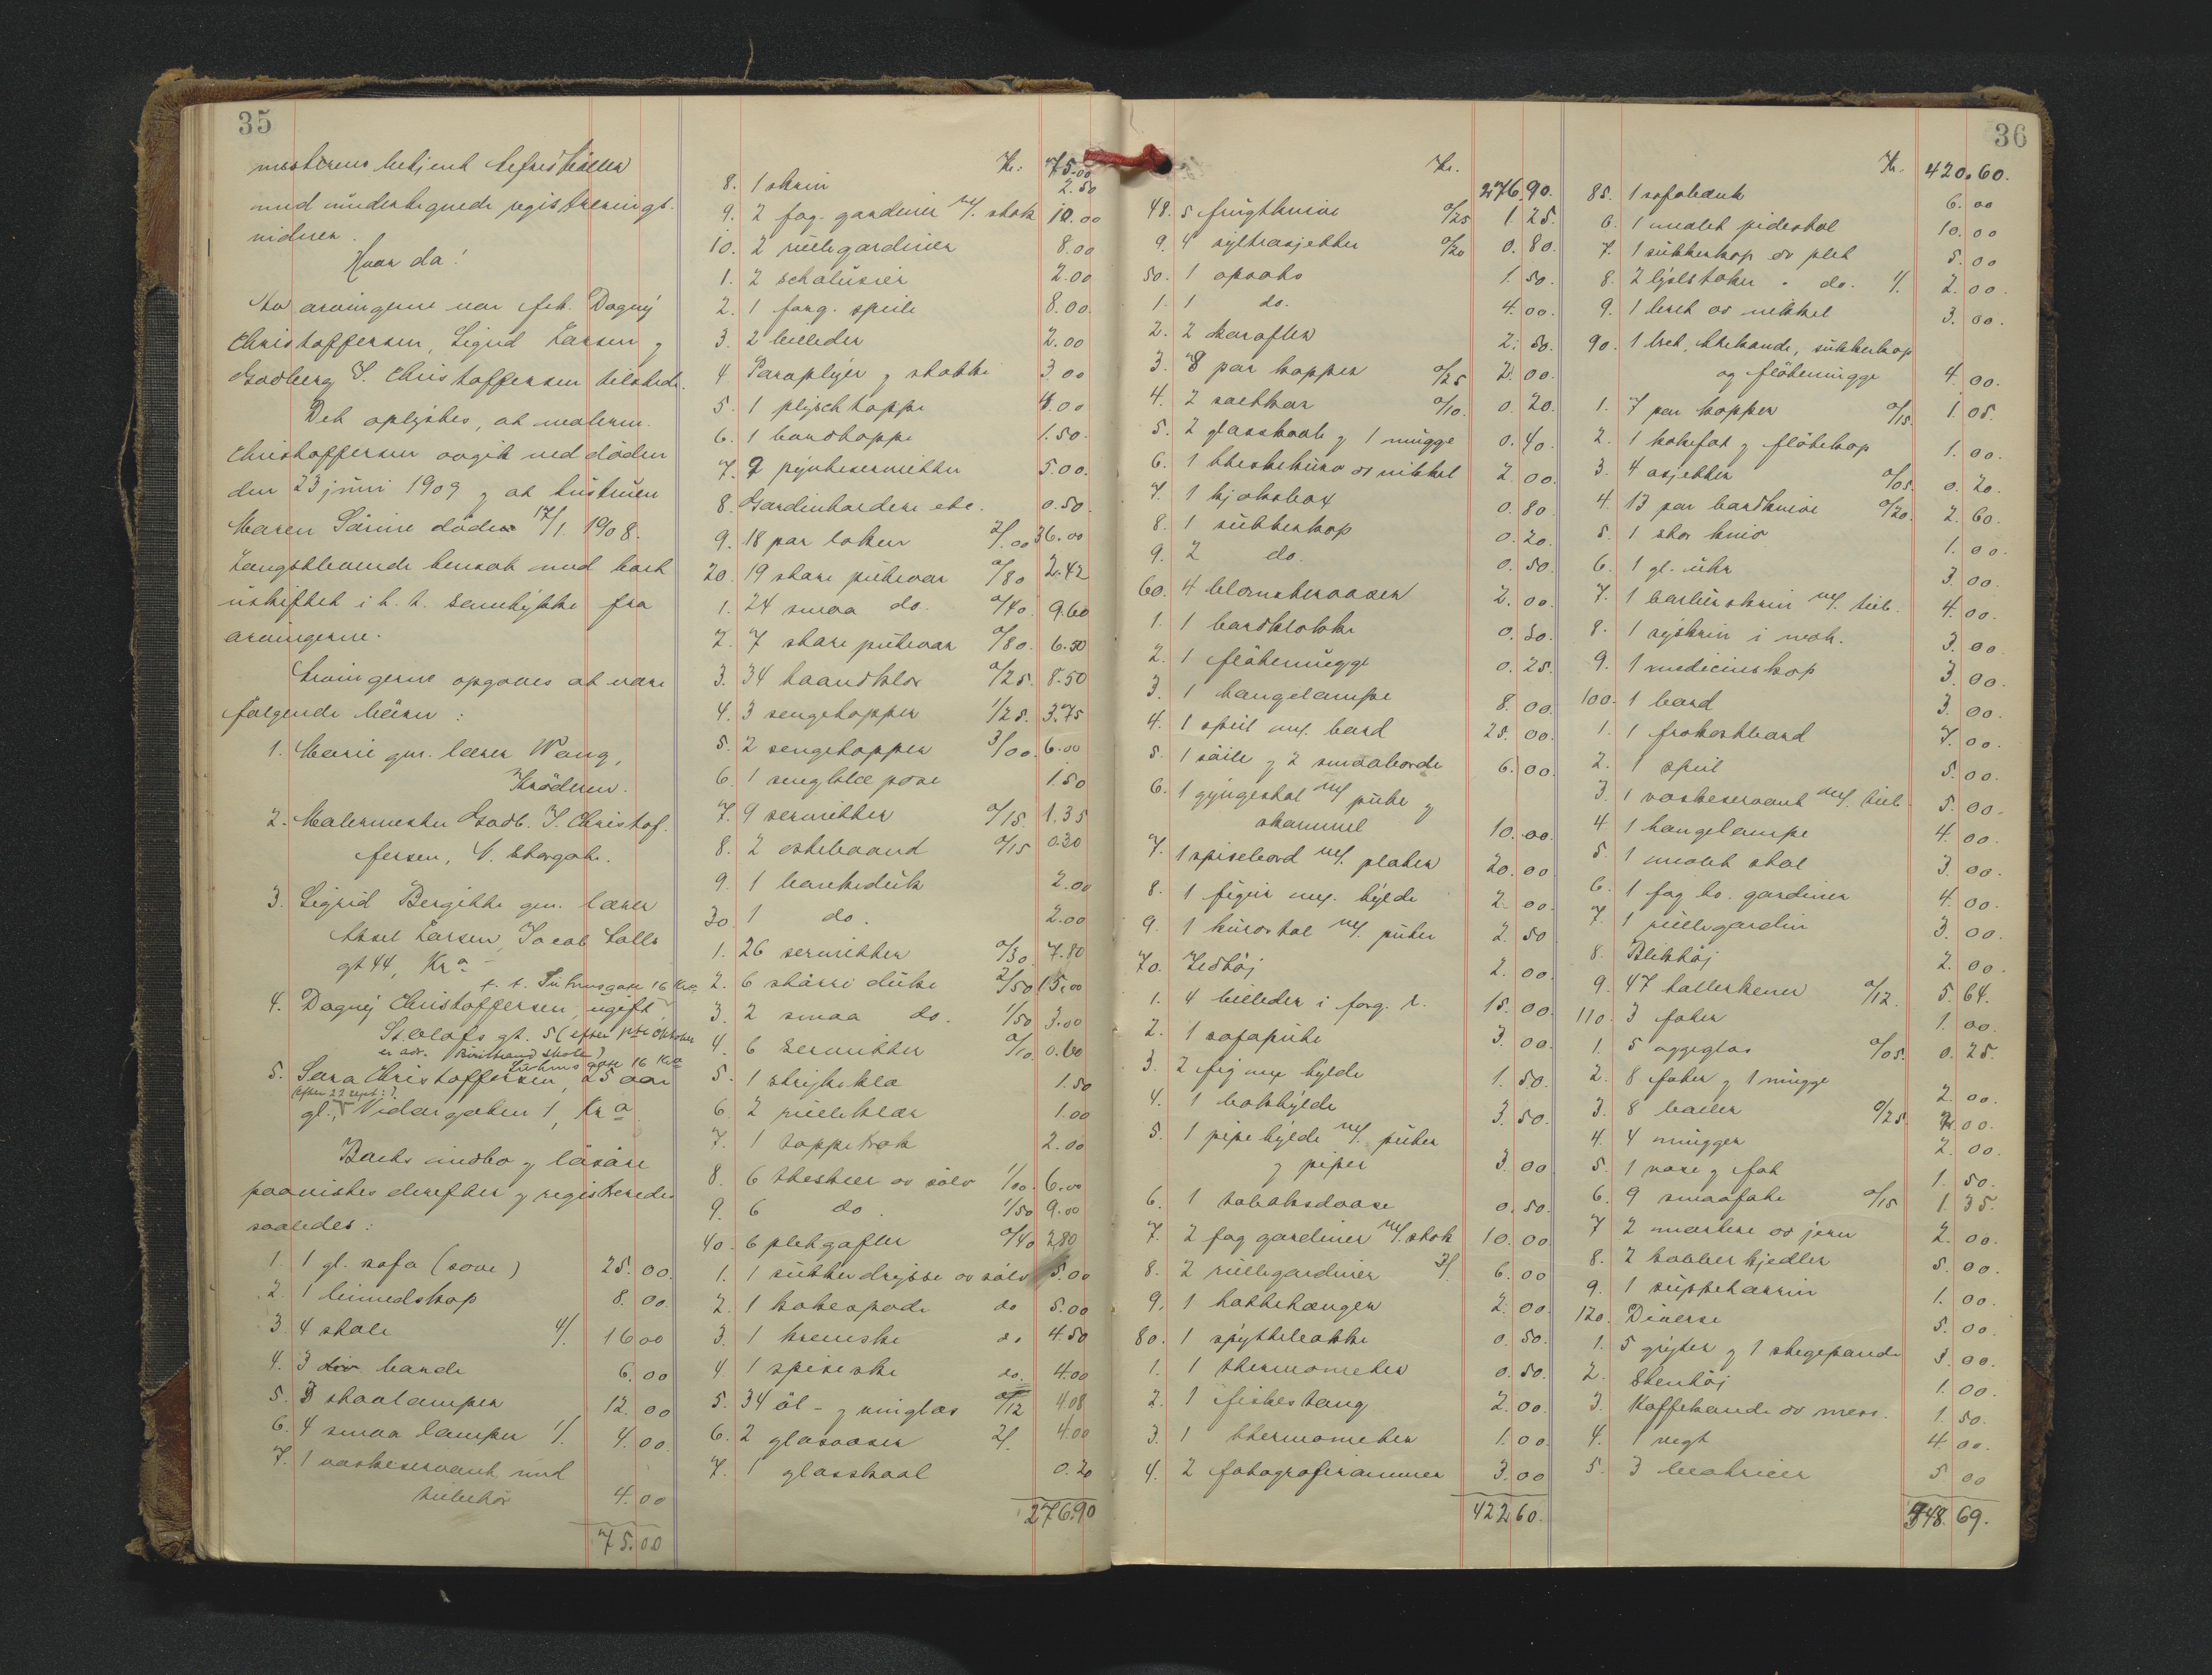 35
mesterens betjent
med undertegnede registrerings-
vidner.
Hvor da!
Av arvingerne var frk. Dagny
Christoffersen, Sigrid Larsen og
Godberg S. Christoffersen tilstede.
Det oplystes, at malerm.
Christoffersen avgik ved döden
den 23 juni 1909 og at hustruen
Maren Sörine döde 17/1 1908.
Længstlevende hensat med boet
uskiftet i h. t. samtykke fra
arvingerne.
Arvingerne opgaves at være
følgende börn:
1. Marie gm. lærer Wang,
Kröderen.
2. Malermester Godb. S. Christof-
fersen, V. Storgate.
3. Sigrid Bergitte gm. lærer
Aksel Larsen, Jacob Aalls
gt 44, Kra
f. t. Suhmsgate 16 Kra
4. Dagny Christoffersen, ugift
St. Olafs gt. 5 (efter 1ste oktober
er adr. Buskerud skole)
Suhmsgate 16 Kra
5. Sara Christoffersen, 25 aar
(efter 22 sept:)
gl., Vidargaten 1, Kra
Boets indbo og lösöre
paavistes derefter og registreredes
saaledes:
1. 1 gl. sofa (sove) 25.00
2. 1 linnedskap 8.00
3. 4 stole 4/. 16 00
4. 3 div borde 6.00
5. 3 staalamper 12.00
6. 4 smaa lamper 1/. 4.00
7. 1 vaskeservant med
tilbehör 4.00
75.00
Kr. 75.00
8. 1 skrin 2.50
9. 2 fag. gardiner m/. stok 10.00
10. 2 rullegardiner 8.00
1. 2 schalusier 2.00
2. 1 forg. speile 8.00
3. 2 billeder 2.00
4. Paraplyer og stokke 3.00
5. 1 plyschteppe 4.00
6. 1 bordteppe 1.50
7. 2 pynteservietter 5.00
8. Gardinholdere etc. 0.50
9. 18 par laken 2/.00 36.00
20. 19 store putevar 0/80 2.42
1. 24 smaa do. 0/40 9.60
2. 7 store putevar 0/80. 6.50
3. 34 haandklær 0/25. 8.50
4. 3 sengetepper 1/25. 3.75
5. 2 sengetepper 3/00. 6.00
6. 1 sengklæ pose 1.50
7. 9 servietter 0/15 1.35
8. 2 ostebaand 0/15 0.30
9. 1 bankeduk 2.00
30. 1 do. 2.00
1. 26 servietter 0/30. 7.80
2. 6 större duke 2/50 15.00
3. 2 smaa do. 1/50 3.00
4. 6 servietter 0/10 0.60
5. 1 strykeklæ 1.50
6. 2 rulleklær 1.00
7. 1 teppe 2.00
8. 6 theskeer av sölv 1/00. 6.00
9. 6 do. 1/50 9.00
40. 6 pletgafler 0/40 2.80
1. 1 sukkerdrysse av sölv 5.00
2. 1 kakespade do 5.00
3. 1 kremske do 4.50
4. 1 spiseske do. 4.00
5. 34 öl- og vinglas 0/12 4.08
6. 2 glasvaser 2/. 4.00
7. 1 glasskaal 0.20
276.90
36
Kr. 276.90.
48. 5 frugtkniver 0/25 1.25.
9. 4 sylteasjetter 0/20 0.80.
50. 1 opsats 1.50.
1. 1 do. 4.00.
2. 2 karafler 2.50.
3. 8 par kopper 0/25 2.00.
4. 2 saltkar 0/10. 0.20.
5. 2 glasskaale og 1 mugge 0.40.
6. 1 theskekurv av nikkel 2.00.
7. 1 kjeksbox 0.80.
8. 1 sukkerkop 0.20.
9. 2 do. 0.50.
60. 4 blomstervaser 2.00.
1. 1 bordklokke 0.50.
2. 1 flötemugge 0.25.
3. 1 hængelampe 8.00.
4. 1 speil m/. bord 25.00.
5. 1 söile og 2 smaaborde 6.00
6. 1 gyngestol m/ pute og
skammel 10.00.
7. 1 spisebord m/. plater 20.00
8. 1 figur m/. hylde 2.00.
9. 1 kurvstol m/. puter 2.50
70. Vedtöj 2.00.
1. 4 billeder i forg. r. 15.00.
2. 1 sofapute 3.00.
3. 2 fig m/ hylde 1.50.
4. 1 bokhylde 3.50.
5. 1 pipehylde m/. puter
og piper 3.00
6. 1 tobaksdaase 0.50.
7. 2 fag gardiner m/. stok 10.00.
8. 2 rullegardiner 3/ 6.00
9. 1 hattehænger 2.00
80. 1 spyttebakke 0.50.
1. 1 thermometer 0.50.
2. 1 fiskestang 2.00.
3. 1 thermometer 1.00.
4. 2 fotografirammer 3.00
422 60.
Kr. 420.60.
85. 1 sofabænk 6.00
6. 1 malet pidestal 10.00
7. 1 sukkerkop av plet 5.00
8. 2 lysestaker " do. 1/. 2.00.
9. 1 bret av nikkel 3.00.
90. 1 bret, thekande, sukkerkop
og flötemugge 4.00.
1. 7 par kopper 0/15. 1.05.
2. 1 kakefat og flötekop 1.00.
3. 4 asjetter 0/05. 0.20.
4. 13 par bordkniver 0/20. 2.60.
5. 1 stor kniv 1.00.
6. 1 gl. uhr 3.00.
7. 1 barberskrin m/. tilb. 4.00.
8. 1 syskrin i mah. 3.00.
9. 1 medicinskap 3.00.
100. 1 bord 3.00.
1. 1 frokostbord 7.00.
2. 1 speil 5.00.
3. 1 vaskeservant m/. tilb. 5.00.
4. 1 hængelampe 4.00.
5. 1 malet stol 3.00.
6. 1 fag bo. gardiner 4.00.
7. 1 rullegardin 3.00.
8. Bliktöj 2.00.
9. 47 tallerkener 0/12. 5.64.
110. 3 fater 1.00.
1. 5 æggeglas 0/05. 0.25.
2. 8 fater og 1 mugge 2.00.
3. 8 boller 0/25. 2.00.
4. 4 mugger 2.00.
5. 1 vase og fat 1.50.
6. 9 smaafate 0/15 1.35.
7 2 mortere av jern 2.00.
8. 2 kobberkjedler 5.00.
9. 1 suppeterrin 1.00.
120. Diverse 5.00.
1. 5 gryter og 1 stegepande 3.00.
2. Stentöj 1.00.
3. Kaffekande av mess. 1.50.
4. 1 vegt 4.00.
5. 3 madrasser 5.00
548.69.